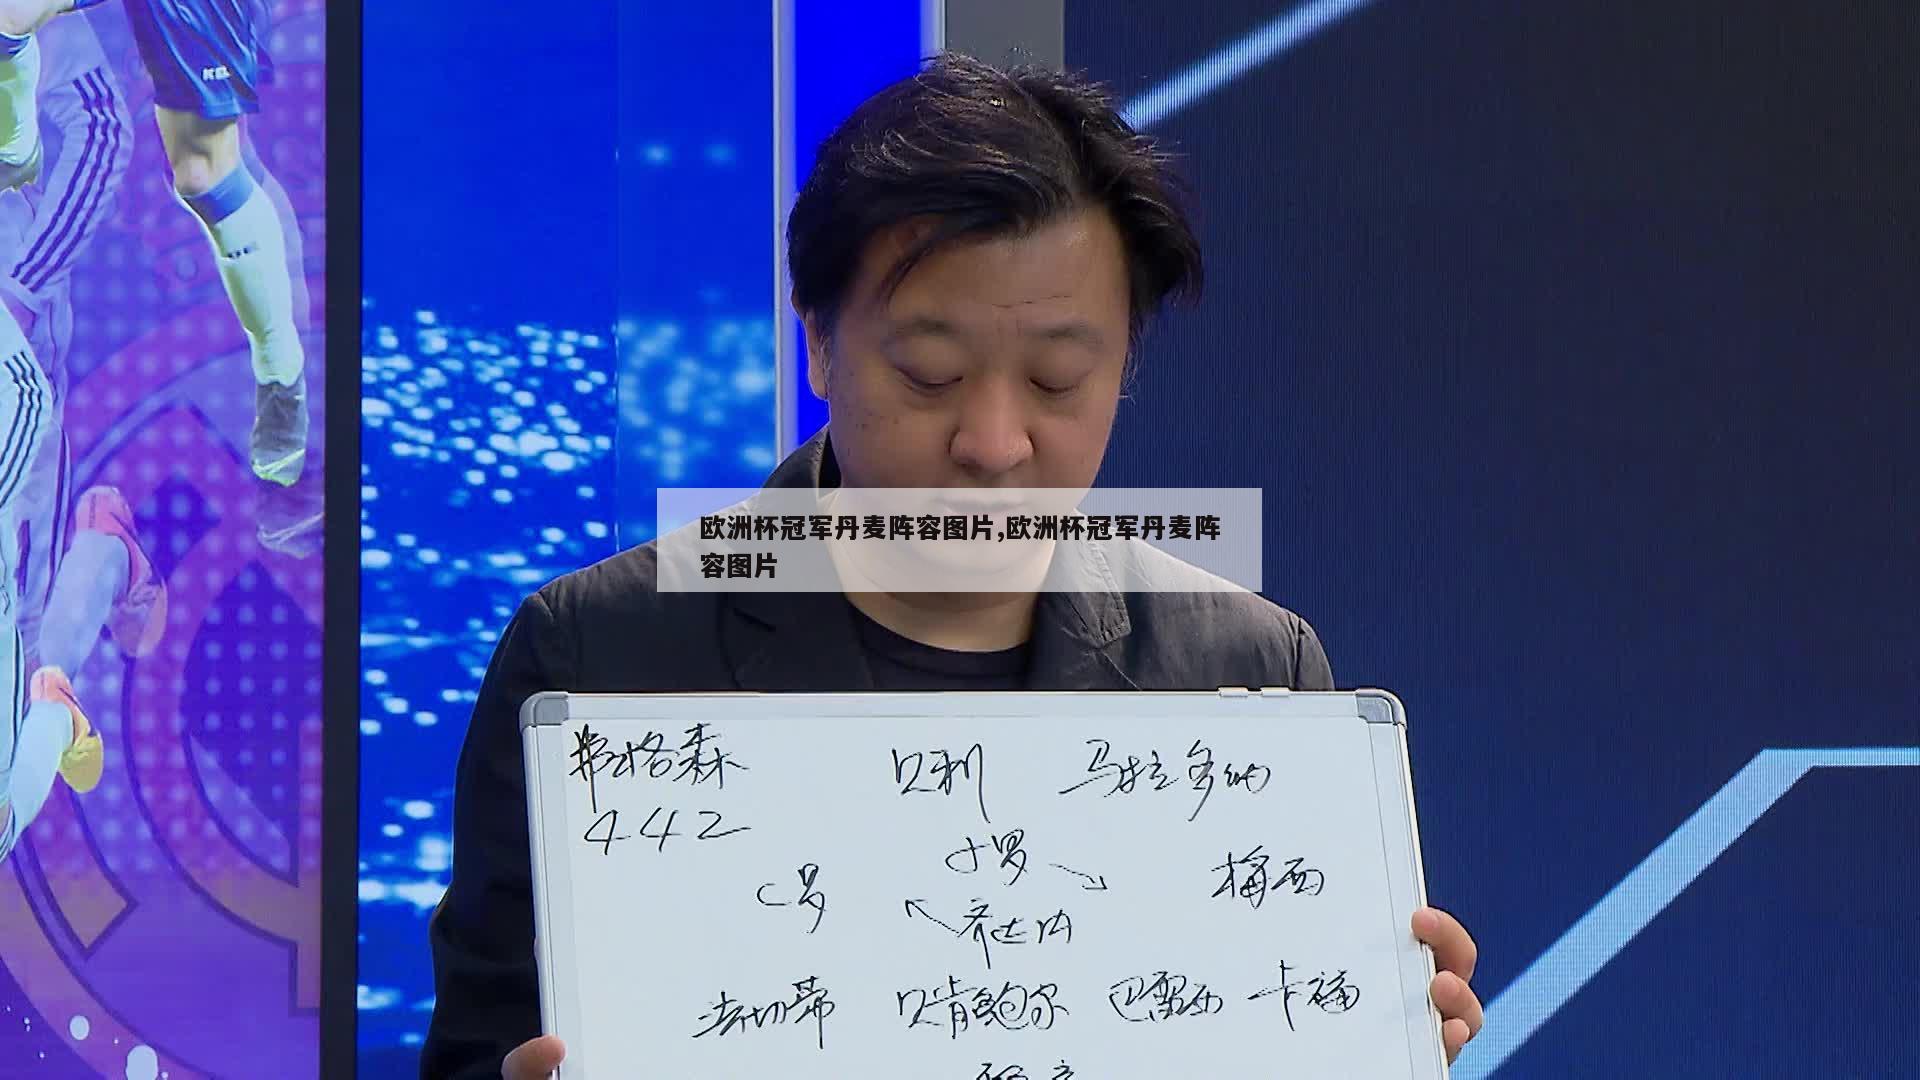 欧洲杯冠军丹麦阵容图片,欧洲杯冠军丹麦阵
容图片
弗格森 贝利 马拉多纳
442
小罗
C罗 梅西
齐达内
法切蒂 贝肯鲍尔 巴雷西 卡福